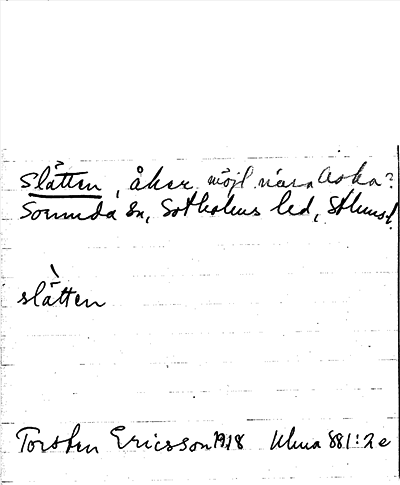 Slåtten, åker möjl. nära Aska?
Sorunda sn, Sotholms hd, Sthms l.
slåtten
Torsten Ericsson 1918 Ulma 881:2e